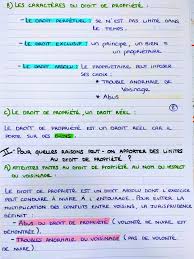 B) LES CARACTÈRES DU DROIT DE PROPRIÉTÉ :
- LE DROIT PERPÉTUEL : SE N'EST PAS LIMITÉ DANS
LE TEMPS.
- LE DROIT EXCLUSIF : UN PRINCIPE, UN BIEN = 1
PROPRIÉTAIRE
- LE DROIT ABSOLU : LE PROPRIÉTAIRE PEUT IMPOSER
SES CHOIX :
* TROUBLE ANORMALE DE
VOISINAGE
* ABUS
C) LE DROIT DE PROPRIÉTÉ, UN DROIT RÉEL :
LE DROIT DE PROPRIÉTÉ EST UN DROIT RÉEL CAR IL
PORTE SUR DES BIENS.
II - POUR QUELLES RAISONS PEUT-ON APPORTER DES LIMITES
AU DROIT DE PROPRIÉTÉ ?
A) ATTEINTES FAITES AU DROIT DE PROPRIÉTÉ AU NOM DU RESPECT
DU VOISINAGE.
LE DROIT DE PROPRIÉTÉ EST UN DROIT ABSOLU DONT L'EXERCICE
PEUT CONDUIRE À NUIRE À L'ENTOURAGE. POUR ÉVITER LA
MULTIPLICATION DES CONFLITS ENTRE VOISINS, LA JURISPRUDENCE
DÉFINIT :
- ABUS DU DROIT DE PROPRIÉTÉ (VOLONTÉ DE NUIRE EST
DÉMONTRÉE).
- TROUBLES ANORMAUX DU VOISINAGE (PAS DE VOLONTÉ
DE NUIRE).